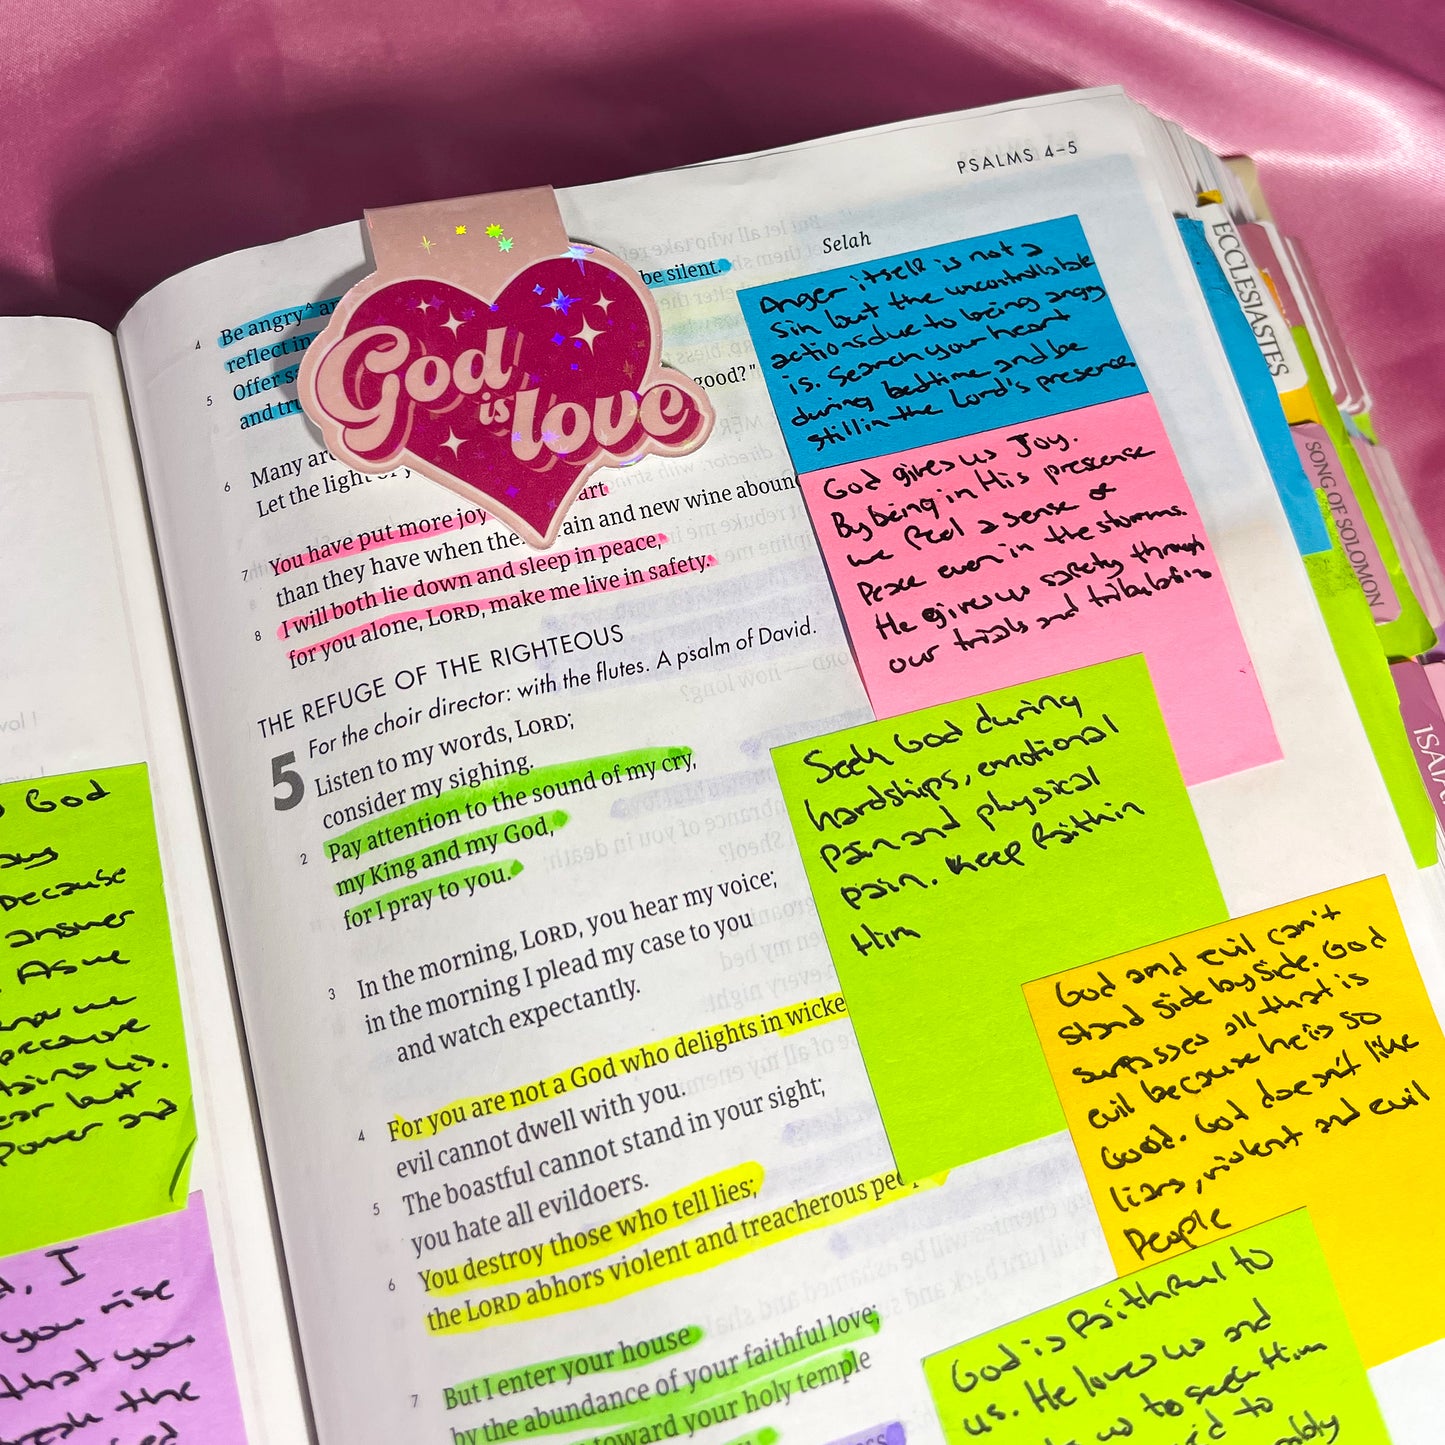 PSALMS 4–5
Selah
4 Be angry A an be silent.
reflect in
5 Offer sa
and tru
good?"
6 Many are
Let the light
7 You have put more joy art
than they have when the rain and new wine aboun
8 I will both lie down and sleep in peace,
for you alone, LORD, make me live in safety.
THE REFUGE OF THE RIGHTEOUS
For the choir director: with the flutes. A psalm of David.
5 Listen to my words, LORD;
consider my sighing.
2 Pay attention to the sound of my cry,
my King and my God,
for I pray to you.
3 In the morning, LORD, you hear my voice;
in the morning I plead my case to you
and watch expectantly.
4 For you are not a God who delights in wicke
evil cannot dwell with you.
5 The boastful cannot stand in your sight;
you hate all evildoers.
6 You destroy those who tell lies;
the LORD abhors violent and treacherous peo
7 But I enter your house
by the abundance of your faithful love;
toward your holy temple
God
is
love
Anger itself is not a
sin but the uncontrollable
actions due to being angry
is. Search your heart
during bedtime and be
still in the Lord's presence.
God gives us Joy.
By being in His presense
we feel a sense of
Peace even in the storms.
He gives us safety through
our trials and tribulation
Seek God during
hardships, emotional
pain and physical
pain. Keep faith in
Him
God and evil can't
stand side by side. God
surpasses all that is
evil because he is so
Good. God doesn't like
liars, violent and evil
People
God is faithful to
us. He loves us and
us to seek Him
to
God
because
answer
Power and
I
you rise
that you
the
ECCLESIASTES
SONG OF SOLOMON
ISAIA